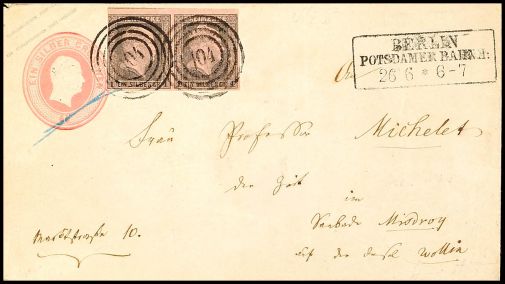 EIN SILBER GR
EIN SILBERGR. EIN SILBERGR.
104 104
BERLIN
POTSDAMER BAHNH:
26 6 * 6-7
An
Frau Professor Michelet
der Zeit
im
Seebade Misdroy
auf der Insel Wollin
10.